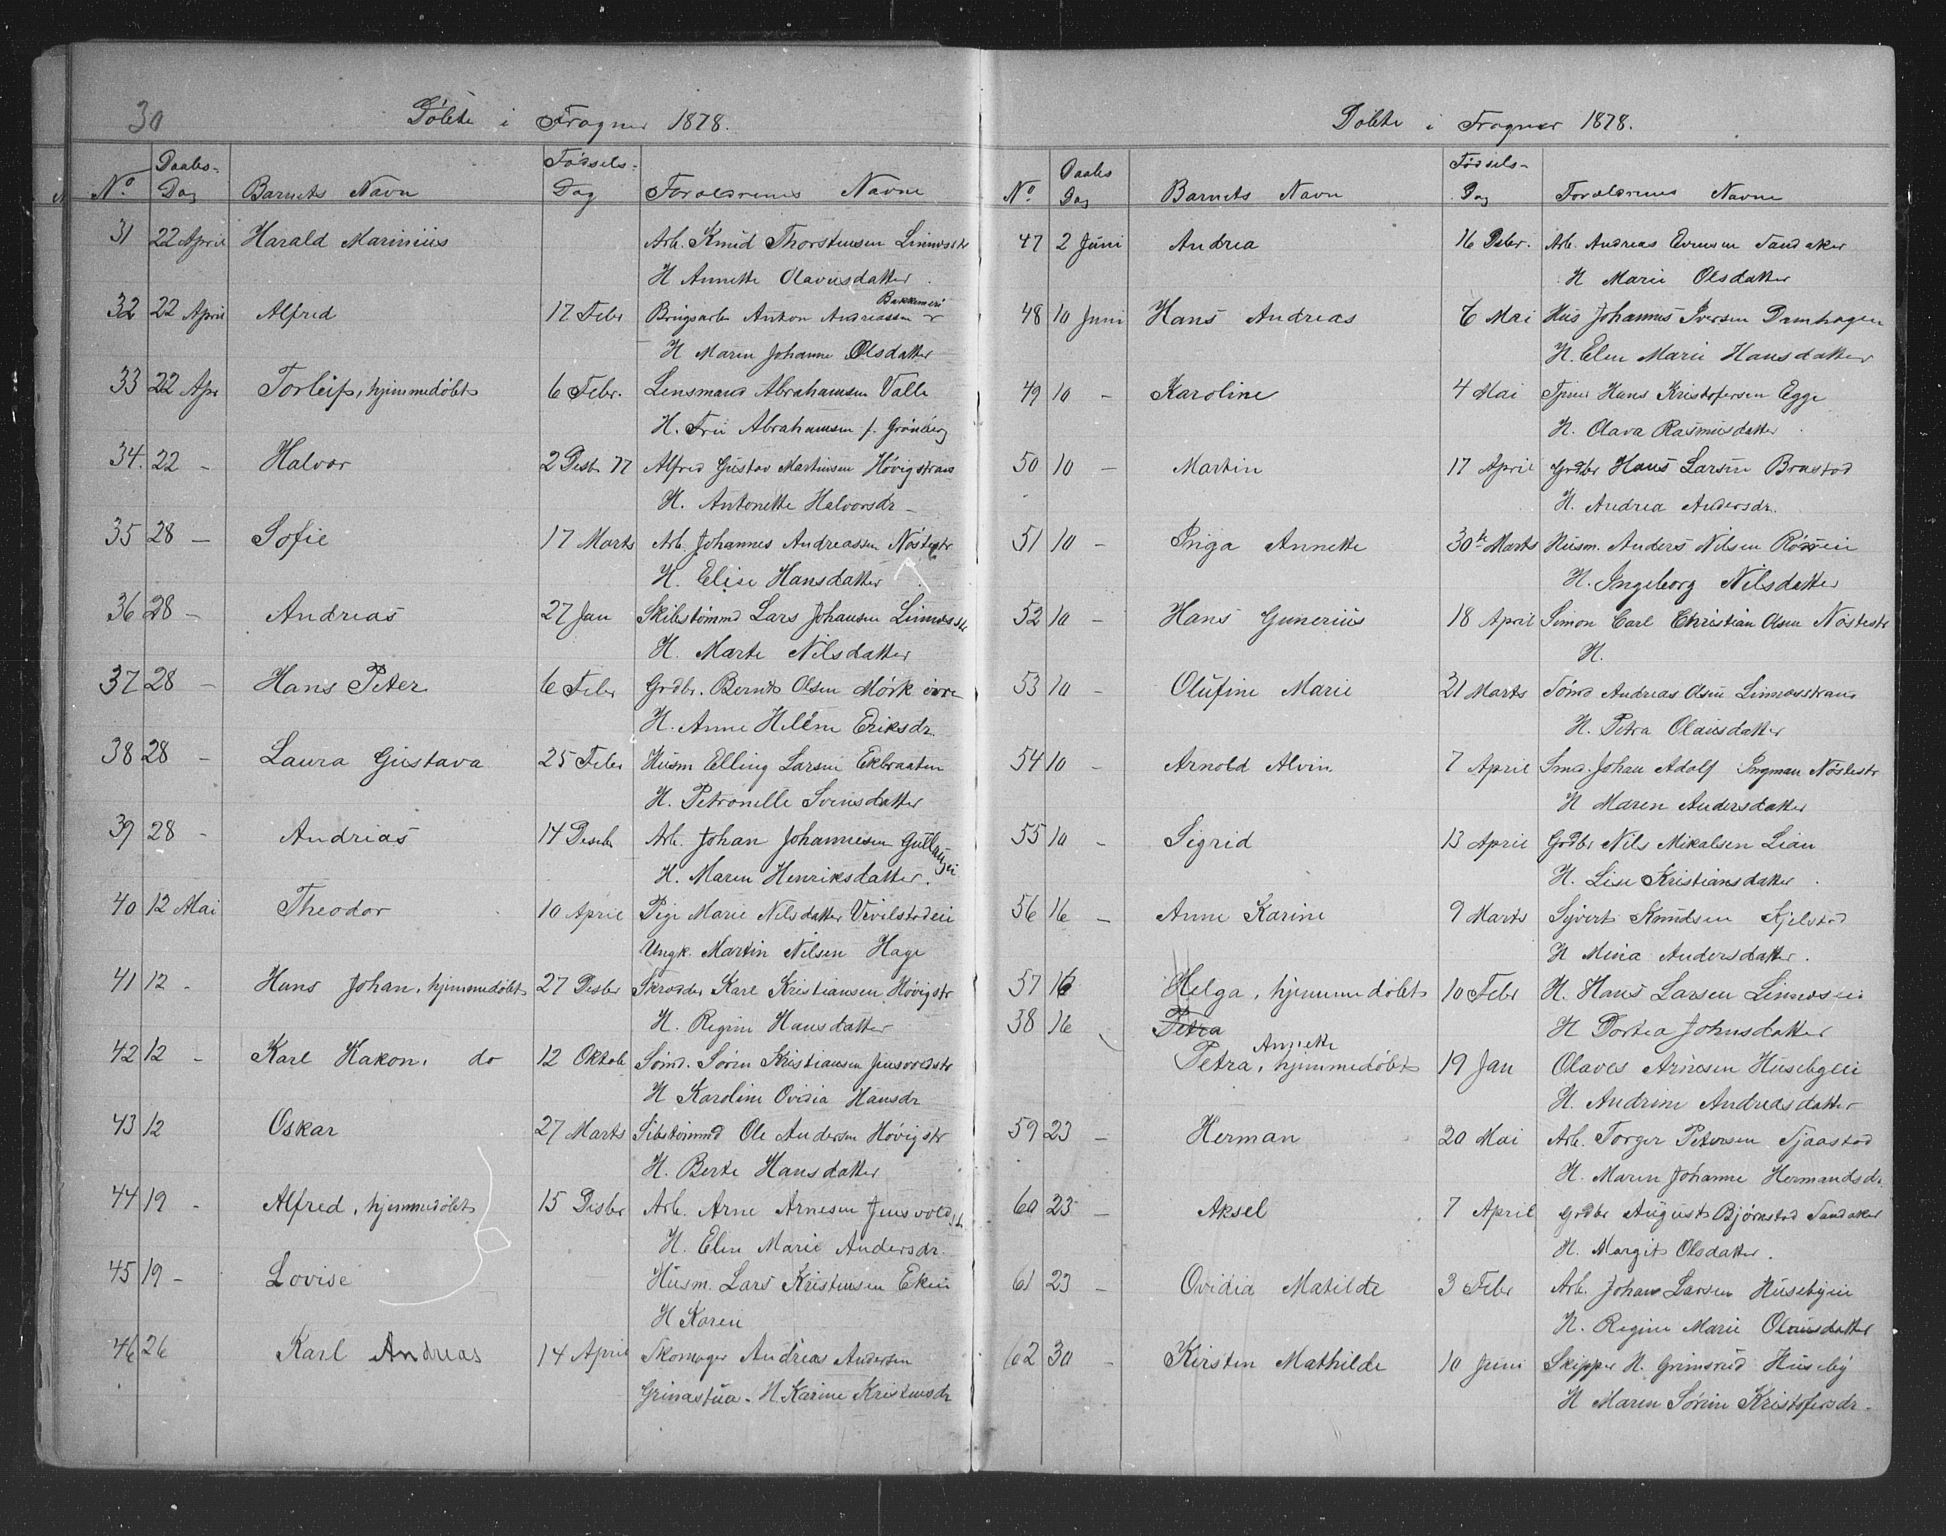 30
Döbte i Frogner 1878.
No Daabs- Dag Barnets Navn Fødsels- Dag Forældrenes Navne
31 22 April Harald Marinius Arb. Knud Thorstensen Linnesstr
H Annette Olavusdatter
32 22 April Alfred 17 Febr Brugsarb Anton Andreassen Bakkenei
H Maren Johanne Olsdatter
33 22 Apr Torleif, hjemmedøbt 6 Febr. Lensmand Abrahamsen Valle
H. Fru Abrahamsen f. Grønberg
34 22 - Halvor 2 Desb 77 Alfred Gustav Martinsen Høvigstran
H. Antonette Halvorsdr
35 28 - Sofie 17 Marts Arb. Johannes Andreassen Nøstestr
H. Elise Hansdatter
36 28 - Andreas 27 Jan Skibstømmd Lars Johansen Linnesstr
H. Marte Nilsdatter
37 28 - Hans Peter 6 Febr Grdbr. Bernt Olsen Mørk övre
H. Anne Helene Eriksdr.
38 28 - Laura Gustava 25 Febr Husm Elling Larsen Ekbraaten
H. Petronelle Svensdatter
39 28 - Andreas 14 Desbr Arb. Johan Johannesen Gullaugei
H. Maren Henriksdatter.
40 12 Mai Theodor 10 April Pige Marie Nilsdatter Vivilstadeie
Ungk. Martin Nilsen Hage
41 12 - Hans Johan, hjemmedøbt 27 Desbr Skrædder Karl Kristiansen Høvigstr
H. Regine Hansdatter
42 12 - Karl Hakon, do 12 Oktob Tømd. Søren Kristiansen Jensvoldstr
H Karoline Ovidia Hansdr
43 12 Oskar 27 Marts Sibstømmd Ole Andersen Høvigstr
H. Berte Hansdatter
44 19 - Alfred, hjemmedøbt 15 Desbr Arb. Arne Arnesen Jensvoldstr
H. Elen Marie Andersdr.
45 19 - Lovise Husm. Lars Kristensen Ekeie
H Karen
46 26 Karl Andreas 14 April Skomager Andreas Andersen
Grinastua - H Karine Kristensdr
Döbte i Frogner 1878.
No Daabs Dag Barnets Navn Fødsels- Dag Forældrenes Navne
47 2 Juni Andrea 16 Debr. Arb. Andreas Evensen Sandaker
H Marie Olsdatter
48 10 Juni Hans Andreas 6 Mai Hus Johannes Iversen Damhagen
H. Elen Marie Hansdatter
49 10 - Karoline 4 Mai Tjener Hans Kristofersen Egge
H. Olava Rasmusdatter
50 10 - Martin 17 April Grdbr Hans Larsen Brastad
H. Andrea Andersdr.
51 10 - Inga Annette 30te Marts Husm. Anders Nilsen
H. Ingeborg Nilsdatter
52 10 - Hans Gunerius 18 April Simon Carl Christian Olsen Nöstestr
H.
53 10 - Olufine Marie 21 Marts Tømd Andreas Olsen Linnesstran
H. Petra Olausdatter
54 10 - Arnold Alvin 7 April Smd. Johan Adolf Ingman Nöstestr
H Maren Andersdatter
55 10 - Sigrid 13 April Grdbr Nils Mikalsen Lian
H. Lise Kristiansdatter
56 16 - Anne Karine 9 Marts Syvert Knudsen Kjelstad
H Mina Andersdatter.
57 16 Helga, hjemmedøbt 10 Febr H. Hans Larsen Linneseie
38 16 Petra H Dortea Johnsdatter
Petra Annette, hjemmedøbt 19 Jan Olaves Arnesen Husebyeie
H. Andrine Andreasdatter
59 23 - Herman 20 Mai Arb. Torger Petersen Tjaastad
H. Maren Johanne Hermandsdr.
60 23 - Aksel 7 April Grdbr August Bjørnstad Sandaker
H. Margit Olsdatter.
61 23 - Ovidia Matilde 3 Febr Arb. Johan Larsen Husebyeie
H. Regine Marie Olausdatter
62 30 - Kirsten Mathilde 10 Juni Skipper H. Grimsrud Huseby
H Maren Sørine Kristofersdr.